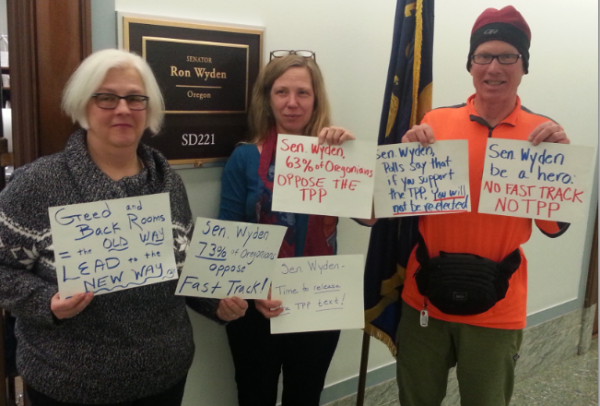 SENATOR
Ron Wyden
Oregon
SD221
Greed and
Back Rooms
= the OLD WAY
LEAD to the
NEW WAY
Sen. Wyden
73% of Oregonians
oppose
Fast Track!
Sen. Wyden,
63% of Oregonians
OPPOSE THE
TPP
Sen Wyden.
Time to release
TPP text!
Sen Wyden,
Polls say that
if you support
the TPP, You will
not be reelected
Sen Wyden
be a hero.
NO FAST TRACK
NO TPP